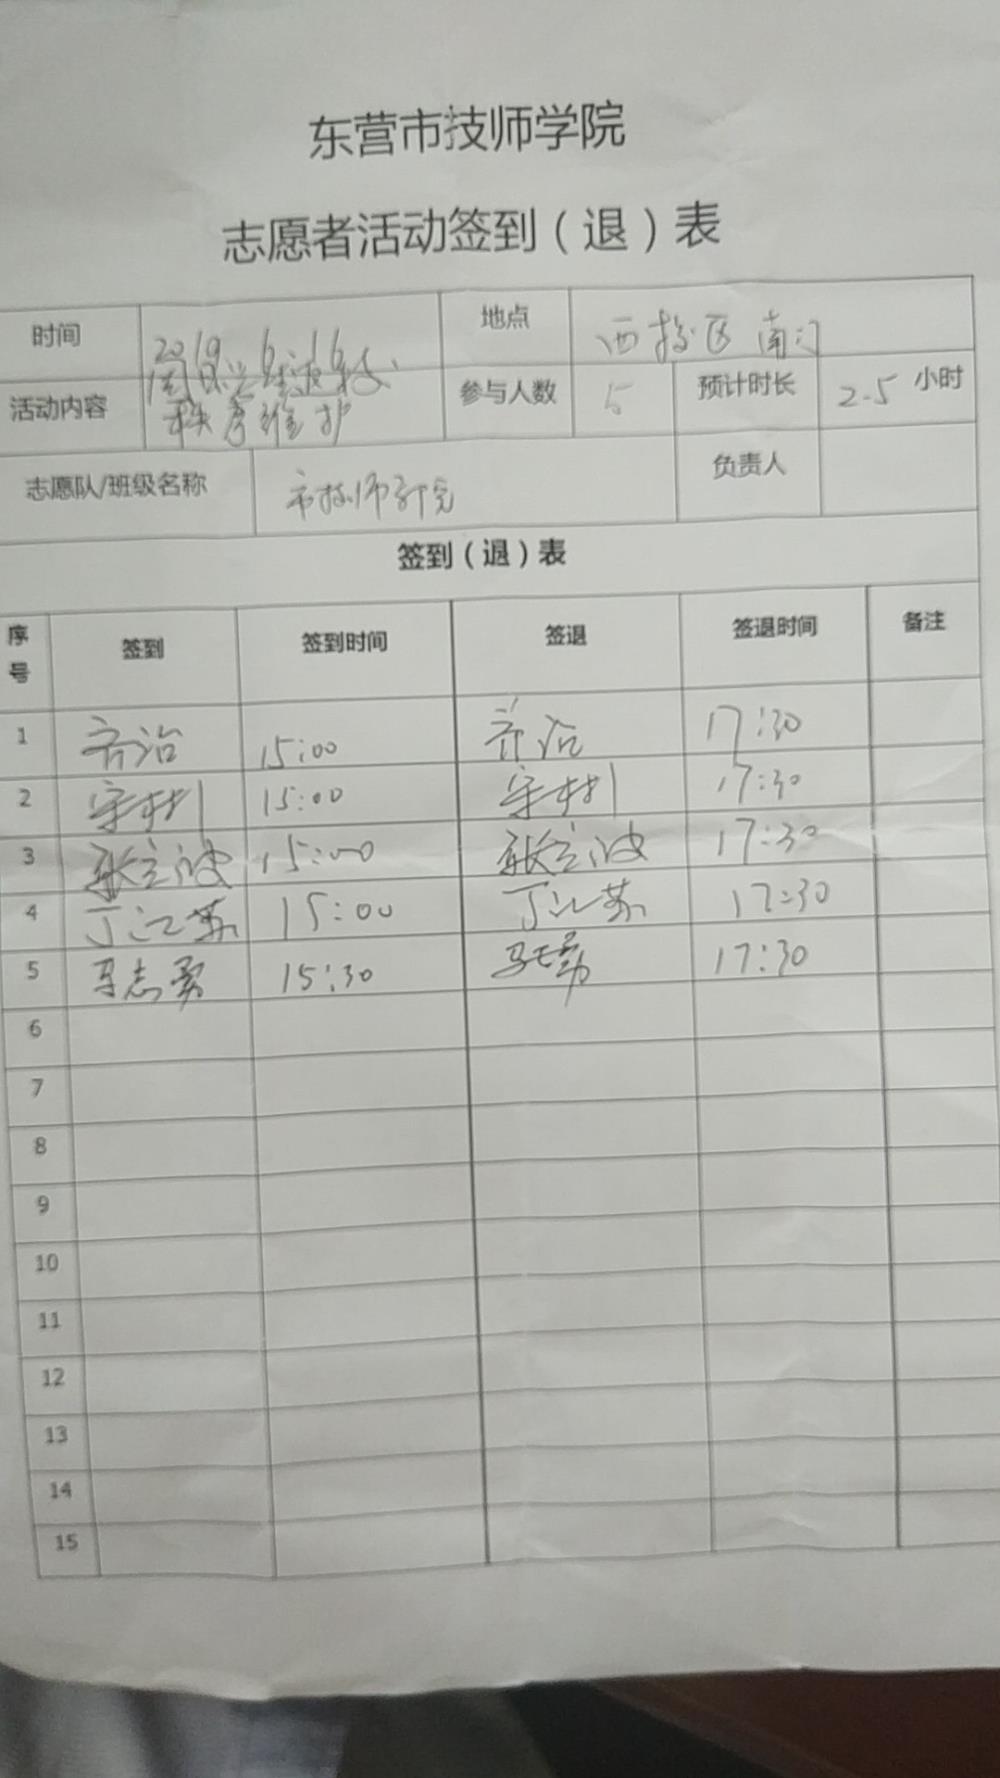 东营市技师学院
志愿者活动签到（退）表
时间 2019.6.16 地点 西校区南门
活动内容 周日学生返校秩序维护 参与人数 5 预计时长 2.5 小时
志愿队/班级名称 市技师学院 负责人
签到（退）表
序号 签到 签到时间 签退 签退时间 备注
1 齐治 15:00 齐治 17:30
2 15:00 17:30
3 张立波 15:00 张立波 17:30
4 丁江苏 15:00 丁江苏 17:30
5 马志勇 15:30 马志勇 17:30
6
7
8
9
10
11
12
13
14
15